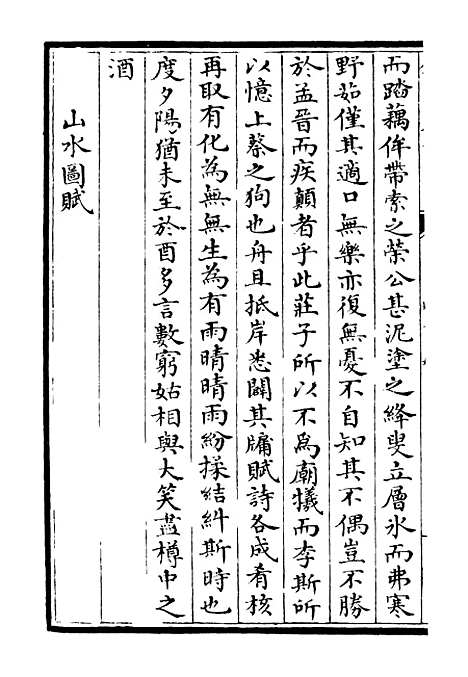 而踏藕侔帶索之榮公甚泥塗之絳叟立層氷而弗寒
野茹僅其適口無樂亦復無憂不自知其不偶豈不勝
於孟晉而疾顛者乎此莊子所以不為廟犧而李斯所
以憶上蔡之狗也舟且抵岸悉闢其牖賦詩各成肴核
再取有化為無無生為有雨晴晴雨紛揉結糾斯時也
度夕陽猶未至於酉多言數窮姑相與大笑盡樽中之
酒
山水圖賦